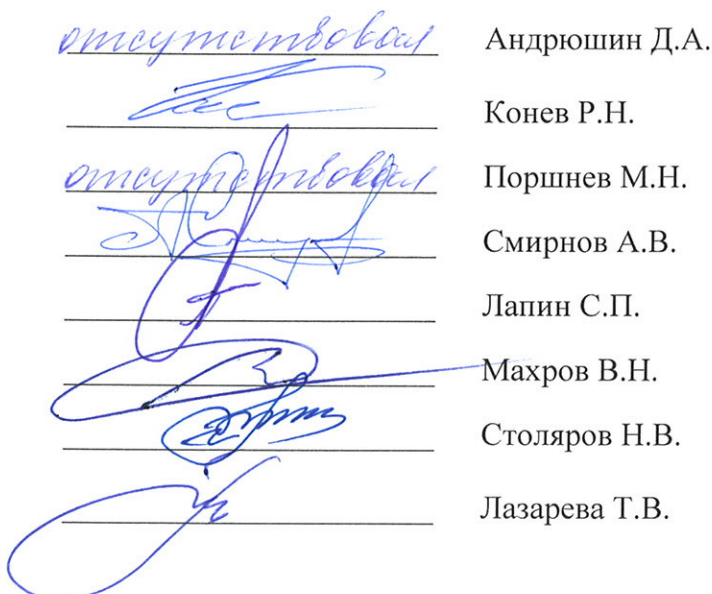 отсутствовал Андрюшин Д.А.
Конев Р.Н.
отсутствовал Поршнев М.Н.
Смирнов А.В.
Лапин С.П.
Махров В.Н.
Столяров Н.В.
Лазарева Т.В.